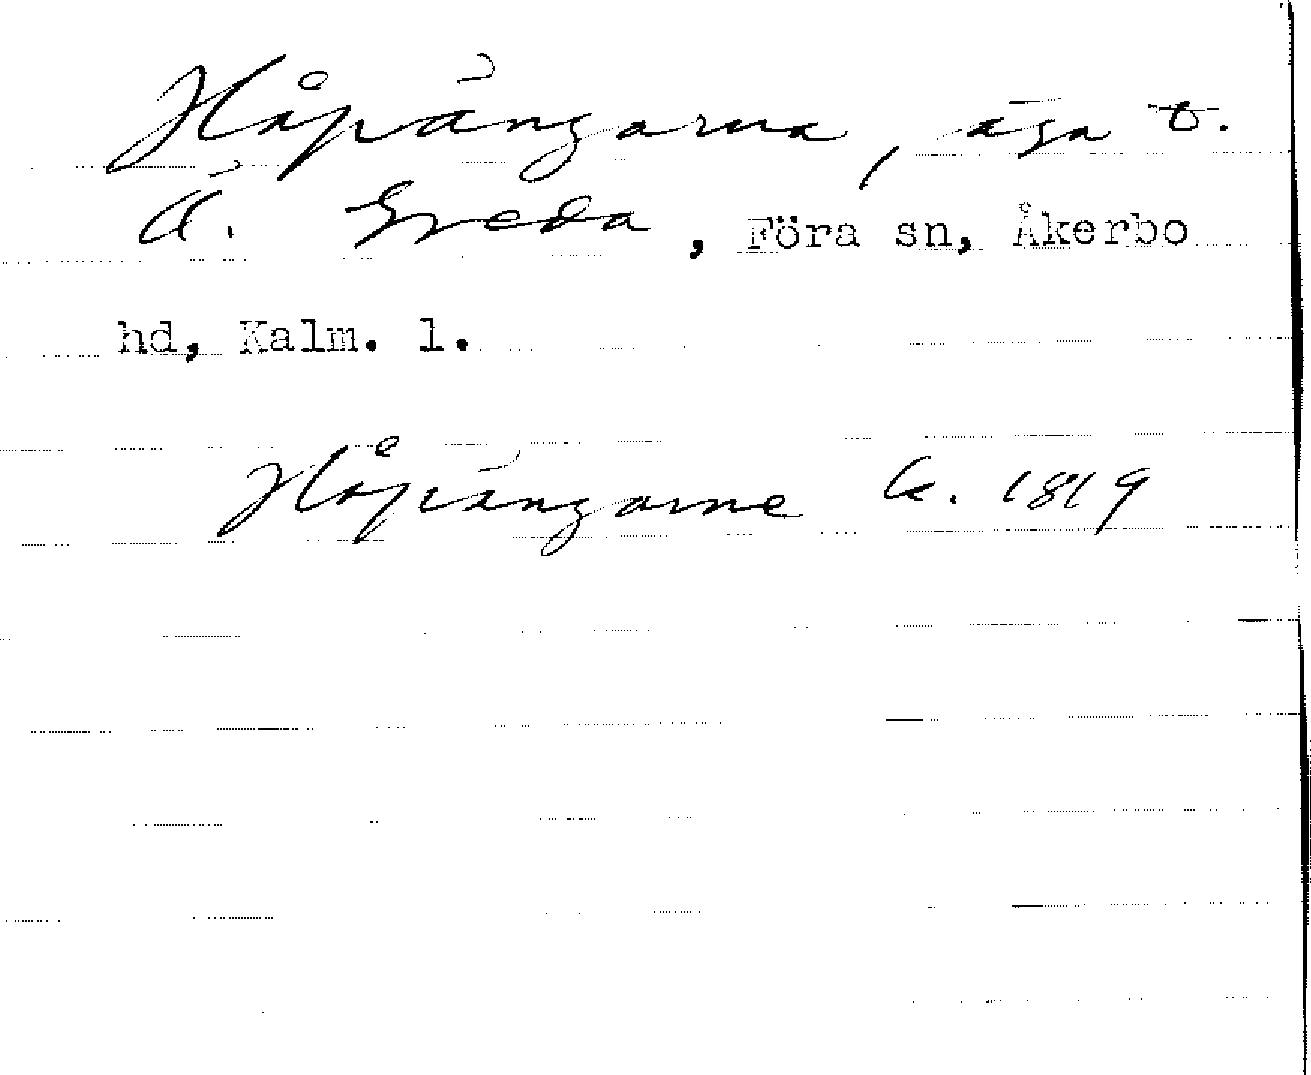 Håpängarna, äga t.
Ö. Greda, Föra sn, Åkerbo
hd, Kalm. l.
Håpängarne k. 1819